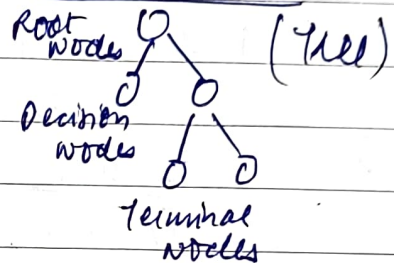 Root
Nodes
(Tree)
Decision
Nodes
Terminal
Nodes